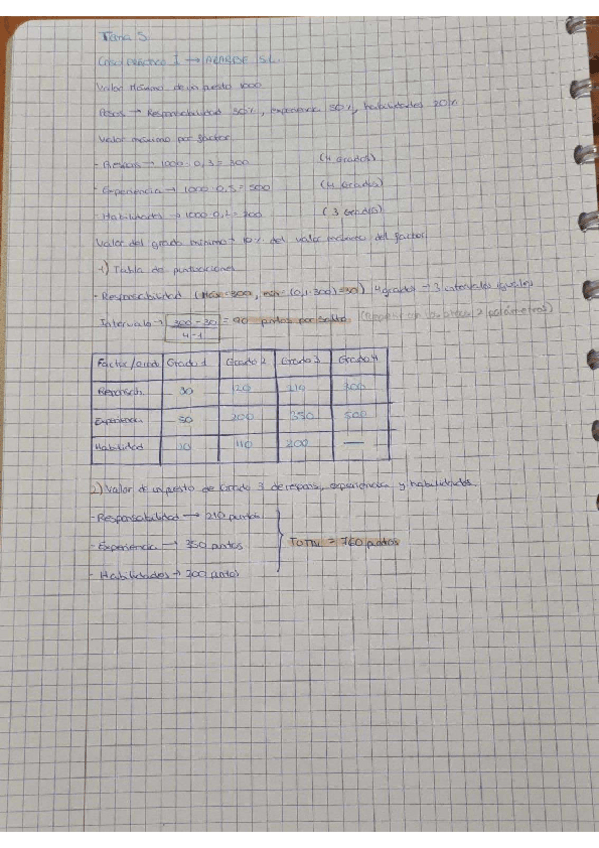 Tema 5
Caso práctico 1 → S.L.
Valor máximo de un puesto 1000
Pesos → Responsabilidad 30%, experiencia 50%, habilidades 20%
Valor máximo por factor
- Respons → 1000 · 0,3 = 300 (4 grados)
- Experiencia → 1000 · 0,5 = 500 (4 grados)
- Habilidades → 1000 · 0,2 = 200 (3 grados)
Valor del grado mínimo → 10% del valor máximo del factor
1) Tabla de puntuaciones
- Responsabilidad (Máx = 300, mín = (0,1 · 300) = 30) 4 grados → 3 intervalos iguales
Intervalo → 300 - 30 / 4 - 1 = 90 puntos por salto. (2 parámetros)
Factor/Grado Grado 1 Grado 2 Grado 3 Grado 4
30 120 210 300
Experiencia 50 200 350 500
Habilidad 110 200 —
2) Valor de un puesto de Grado 3 de respons, experiencia y habilidades.
- Responsabilidad → 210 puntos
- Experiencia → 350 puntos
Total = 760 puntos
- Habilidades → 200 puntos